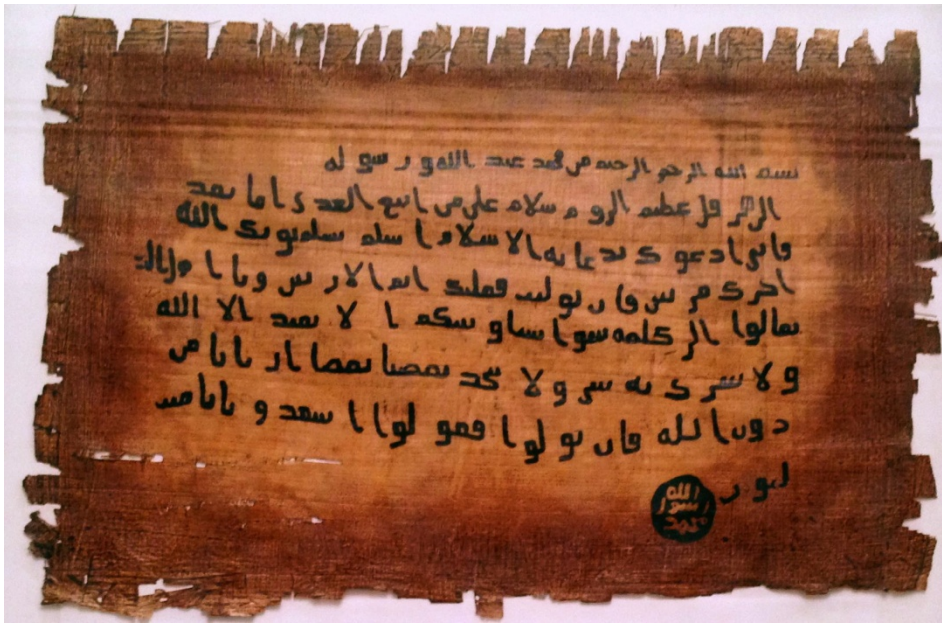 بسم الله الرحمن الرحيم من محمد عبد الله و رسوله
الى هرقل عظيم الروم سلام على من اتبع الهدى اما بعد
فانى ادعوك بدعاية الاسلام اسلم تسلم يوتك الله
اجرك مرتين فان توليت فعليك اثم الاريسين ويا اهل الـ
تعالوا الى كلمة سوا بيننا وبينكم ا لا نعبد الا الله
ولا نشرك به شى ولا يتخذ بعضنا بعضا اربابا من
دون الله فان تولوا فقولوا اشهدوا بانا مسـ
لمون
الله
رسول
محمد